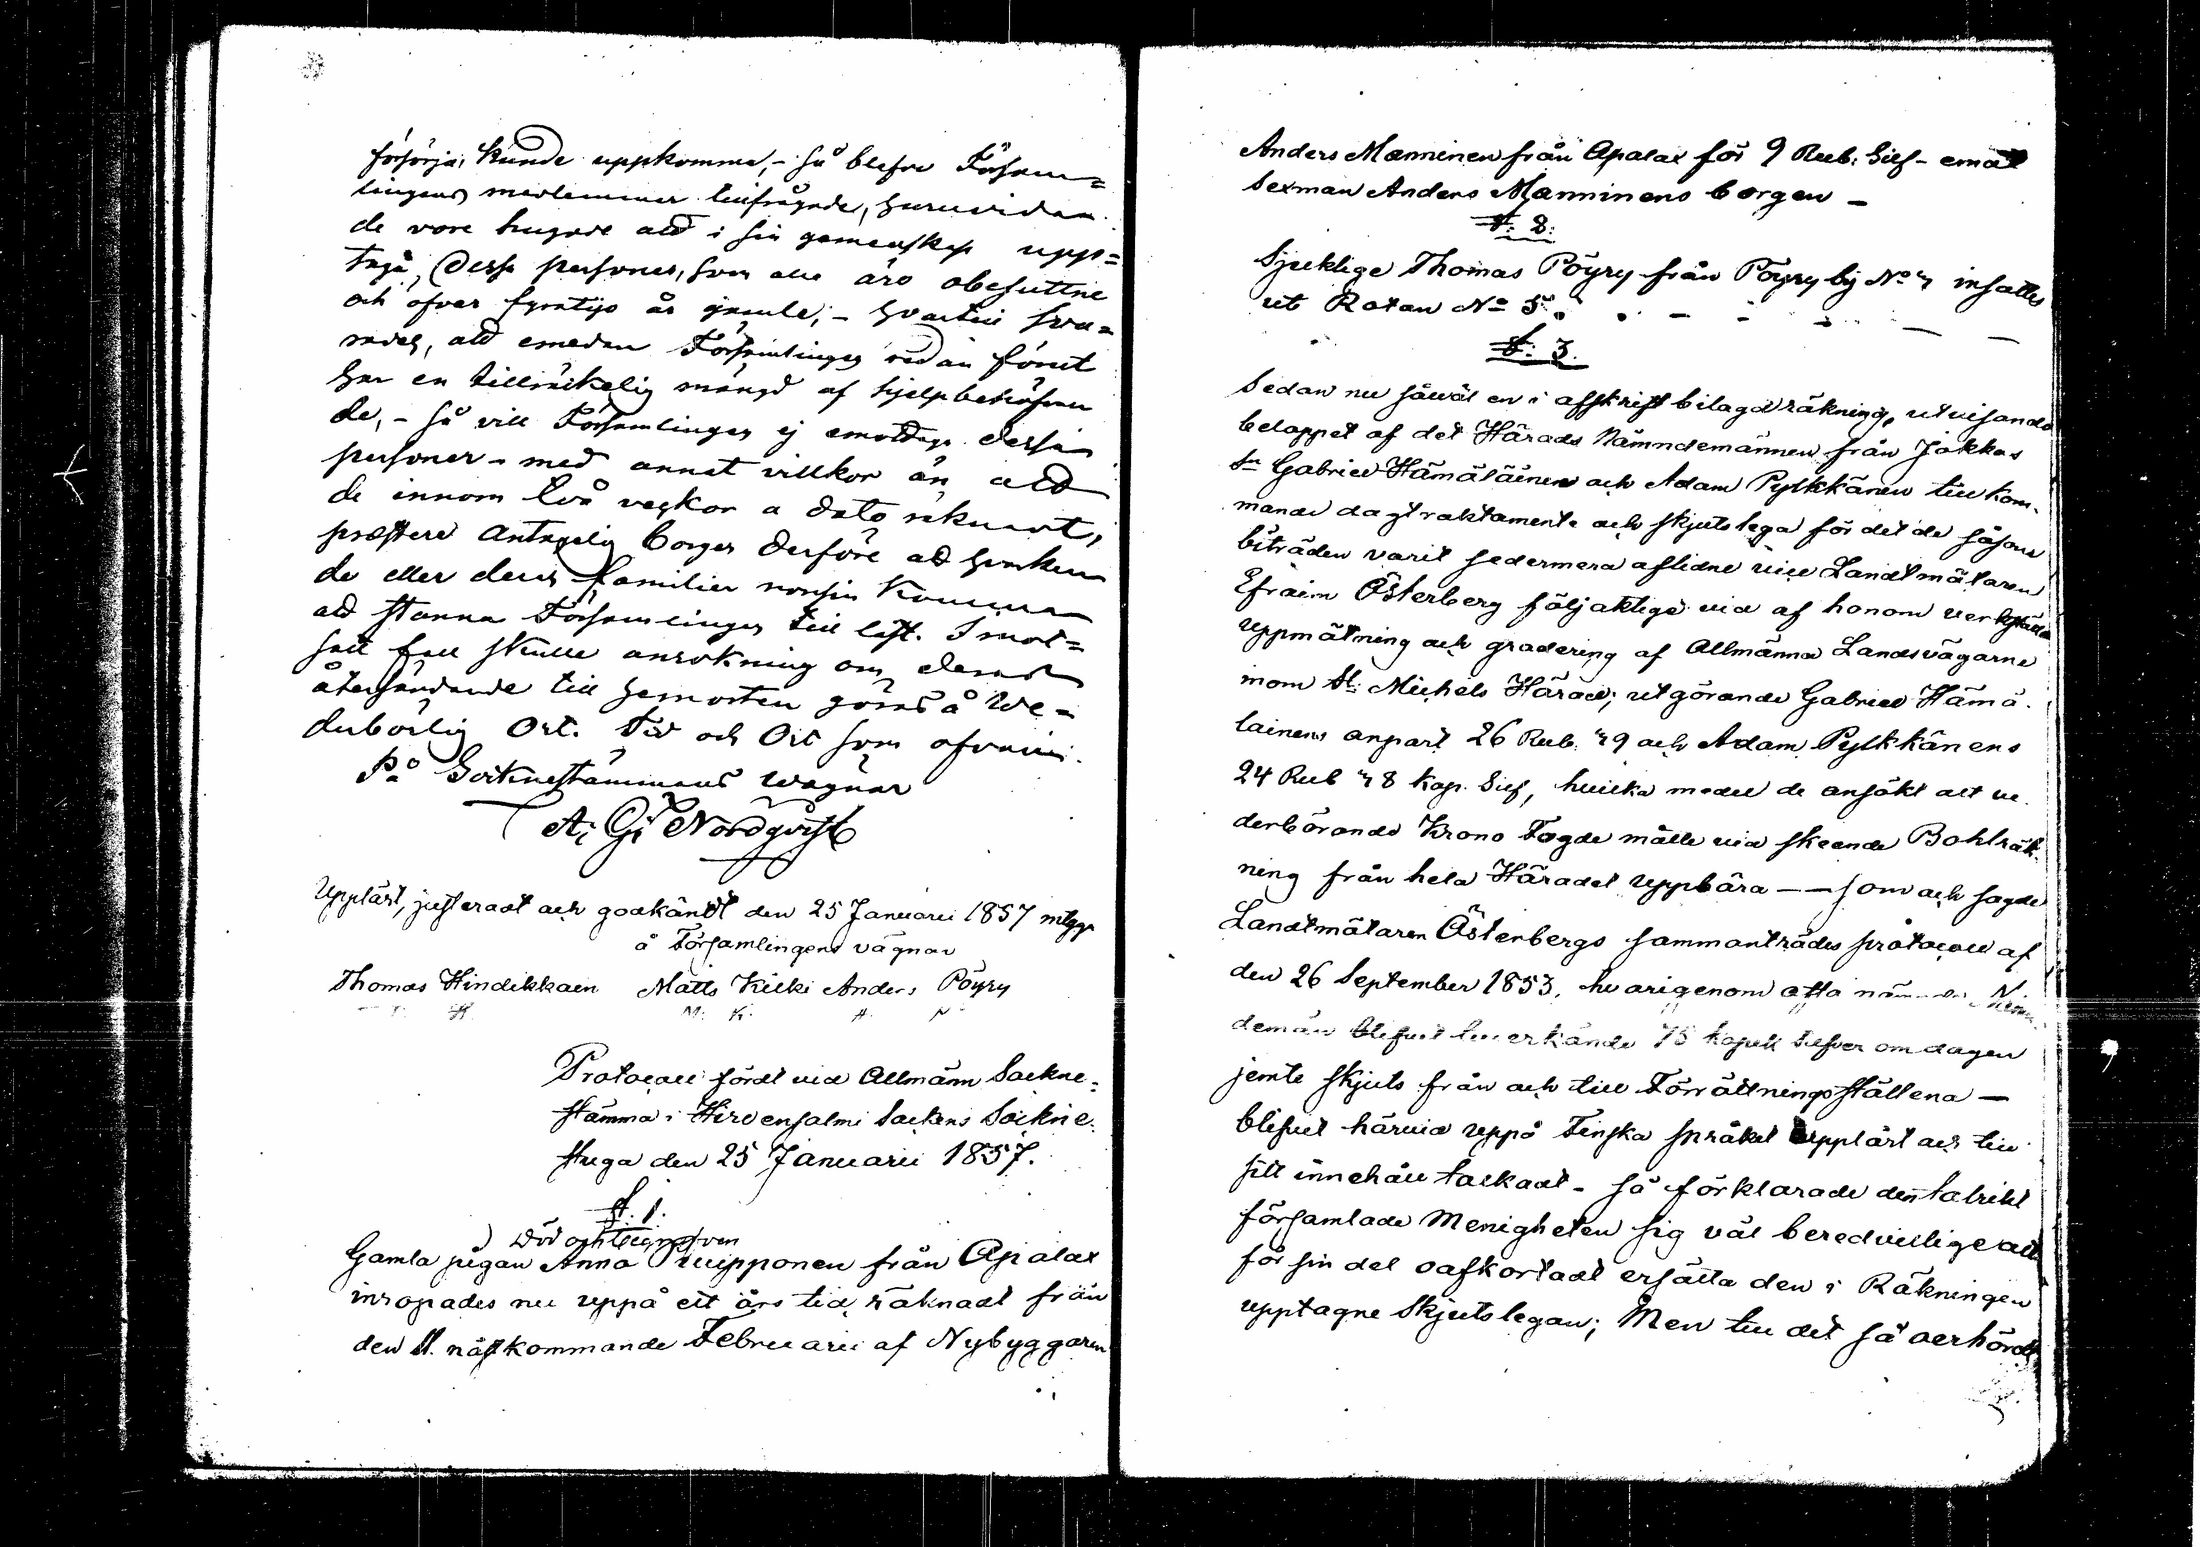 försörja, kunde uppkomma, - så blefvo Församlingens
lingens medlemmar tillfrågade, huruvidan
de vore hugade att i sin gemenskap upp=
taga, dessa personer, som alla äro obesuttne
och öfver fyratijo år gamle; - hvartill sva=
rades, att emedan Församlingen redan förut
har en tillräckelig mängd af hjelpbehöfvan
de, - så vill Församlingen ej emottaga dessa
personer - med annat villkor än att
de innom två veckor a dato räknadt,
præstera antagelig borgen derföre att hvarken
de eller deras familier nonsin komma
att stanna Församlingen till last. I mot=
satt fall skulle ansökning om deras
återsändande till hemorten göras å We=
derbörlig Ort. Tid och Ort som ofvan.
På Socknestämmans wägnar
A. G. Nordqvist
Uppläst, justeradt och godkändt den 25 Januarii 1857 intyga
å Församlingens vägnar
Thomas Hindikkain Matts Kilki Anders Pöyry
T. H. M. K. A. P.
Protocoll fördt vid Allmänn Sockne=
stämma i Hirvensalmi Sockens Sockne
stuga den 25 Januarii 1857.
§. 1.
Död och begrafven
Gamla pigan Anna Pruipponen från Apalax
inropades nu uppå ett års tid, räknadt från
den 1. nästkommande Februarii af Nybyggaren
Anders Manninen från Apalax för 9 Rub. Silf- emot
Sexman Anders Manninens borgen -
§. 2.
Sjuklige Thomas Pöyry från Pöyry by No 4 insattes
uti Rotan No 5.
§. 3.
Sedan nu såväl en i afskrift bilagd räkning, utvisande
beloppet af det Härads Nämndemännen från Jokkas
Sn Gabriel Hämäläinen och Adam Pylkkänen tillkom-
mande dagtraktamente och skjutslega för det de såsom
biträden varit sedermera aflidne vice Landtmätaren
Efraim Österberg följaktige vid af honom verkställd
uppmätning och gradering af Allmänna Landsvägarne
inom St. Michels Härad; utgörande Gabriel Hämä-
läinens anpart 26 Rub. 49 och Adam Pylkkänens
24 Rub 48 kop. Silf, hvilka medel de ansökt att ve
derbörande Krono Fogde måtte vid skeende Bohlräk-
ning från hela Häradet uppbära - - som och sagde
Landtmätaren Österbergs sammanträdes protocoll af
den 26 September 1853, hvarigenom ofta nämnde Näm
demän blifvit tillerkände 75 kopek silfver om dagen
jemte skjuts från och till Förrättningsställena -
blifvit härvid uppå Finska språket upplärt och till
sitt innehåll tolkadt - så förklarade den talrikt
församlade Menigheten sig väl beredvillige att
för sin del oafkortadt ersätta den i Räkningen
upptagne Skjutslegan; Men till det så oerhördt